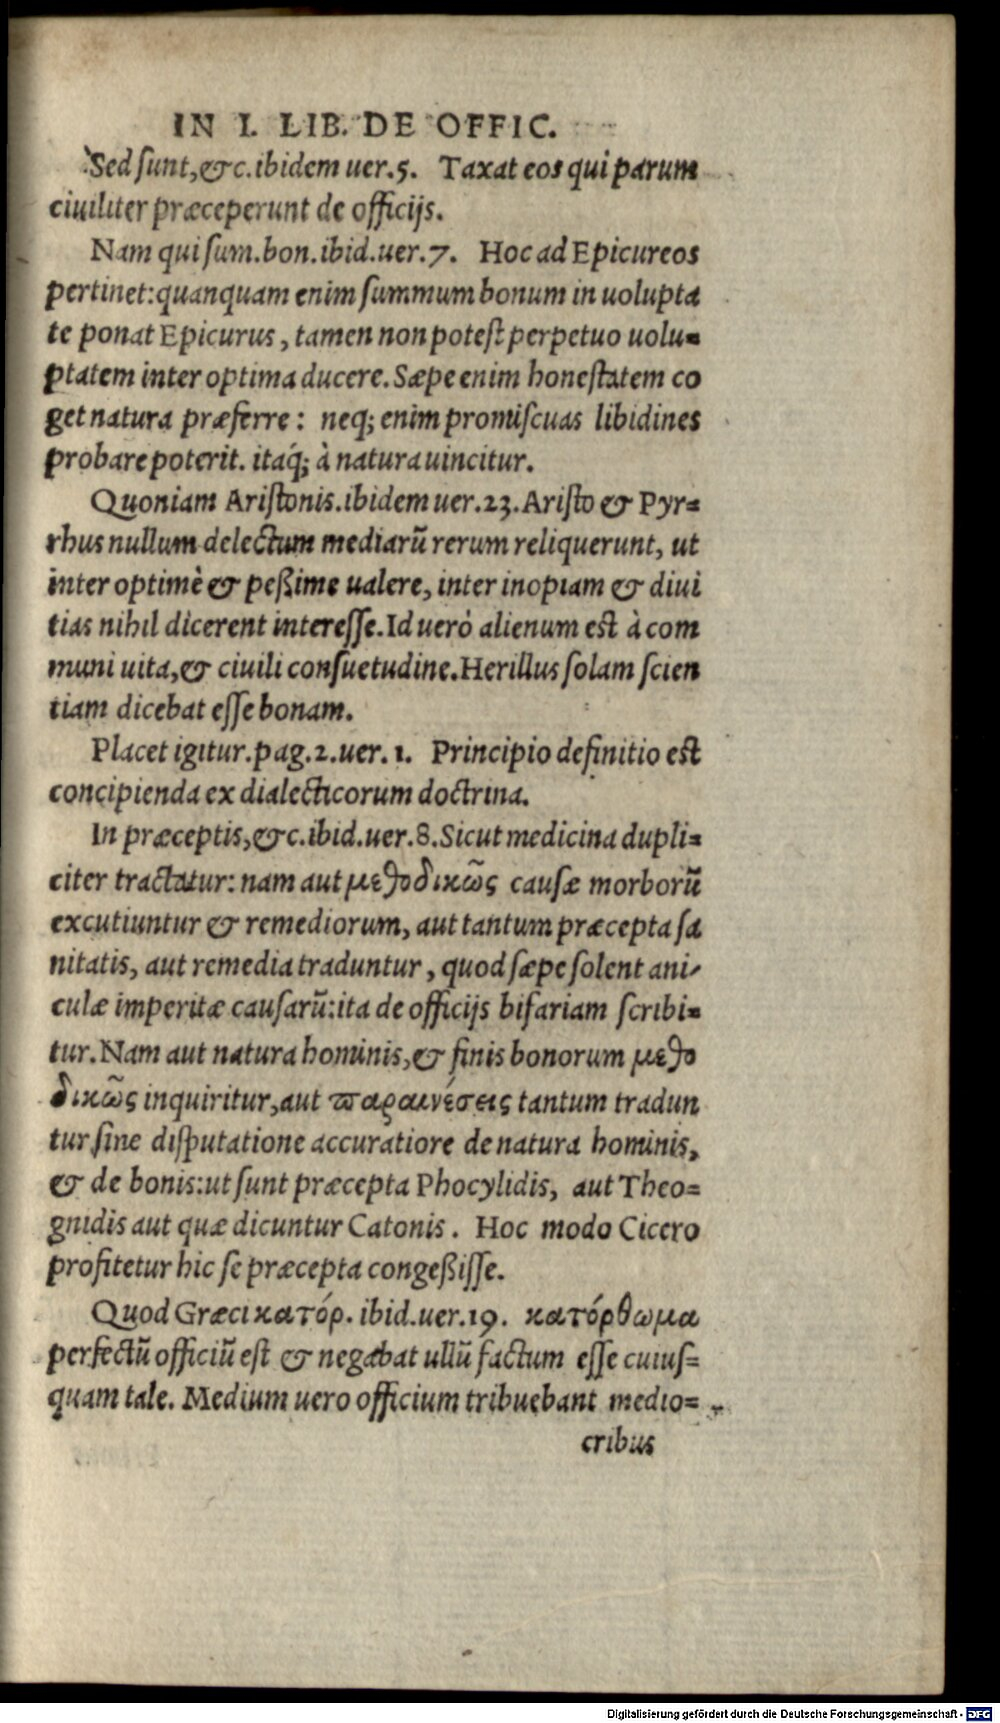 IN I. LIB. DE OFFIC.
Sed ſunt, &c. ibidem uer.5. Taxat eos qui parum
ciuiliter præceperunt de officijs.
Nam qui ſum. bon. ibid. uer.7. Hoc ad Epicureos
pertinet: quanquam enim ſummum bonum in uolupta
te ponat Epicurus, tamen non poteſt perpetuo uolu=
ptatem inter optima ducere. Sæpe enim honeſtatem co
get natura præferre: neq; enim promiſcuas libidines
probare poterit. itaq́; à natura uincitur.
Quoniam Ariſtonis. ibidem uer.23. Ariſto & Pyr=
rhus nullum delectum mediarũ rerum reliquerunt, ut
inter optimè & peßime ualere, inter inopiam & diui
tias nihil dicerent intereſſe. Id uerò alienum eſt à com
muni uita, & ciuili conſuetudine. Herillus ſolam ſcien
tiam dicebat eſſe bonam.
Placet igitur. pag.2. uer.1. Principio definitio eſt
concipienda ex dialecticorum doctrina.
In præceptis, &c. ibid. uer.8. Sicut medicina dupli=
citer tractatur: nam aut μεθοδικῶς cauſæ morborũ
excutiuntur & remediorum, aut tantum præcepta ſa
nitatis, aut remedia traduntur, quod ſæpe ſolent ani-
culæ imperitæ cauſarũ: ita de officijs bifariam ſcribi=
tur. Nam aut natura hominis, & finis bonorum μεθο
δικῶς inquiritur, aut παραινέσεις tantum tradun
tur ſine diſputatione accuratiore de natura hominis,
& de bonis: ut ſunt præcepta Phocylidis, aut Theo=
gnidis aut quæ dicuntur Catonis. Hoc modo Cicero
profitetur hic ſe præcepta congeßiſſe.
Quod Græci κατόρ. ibid. uer.19. κατόρθωμα
perfectũ officiũ eſt & negabat ullũ factum eſſe cuiuſ=
quam tale. Medium uero officium tribuebant medio=
cribus
Digitalisierung gefördert durch die Deutsche Forschungsgemeinschaft - DFG